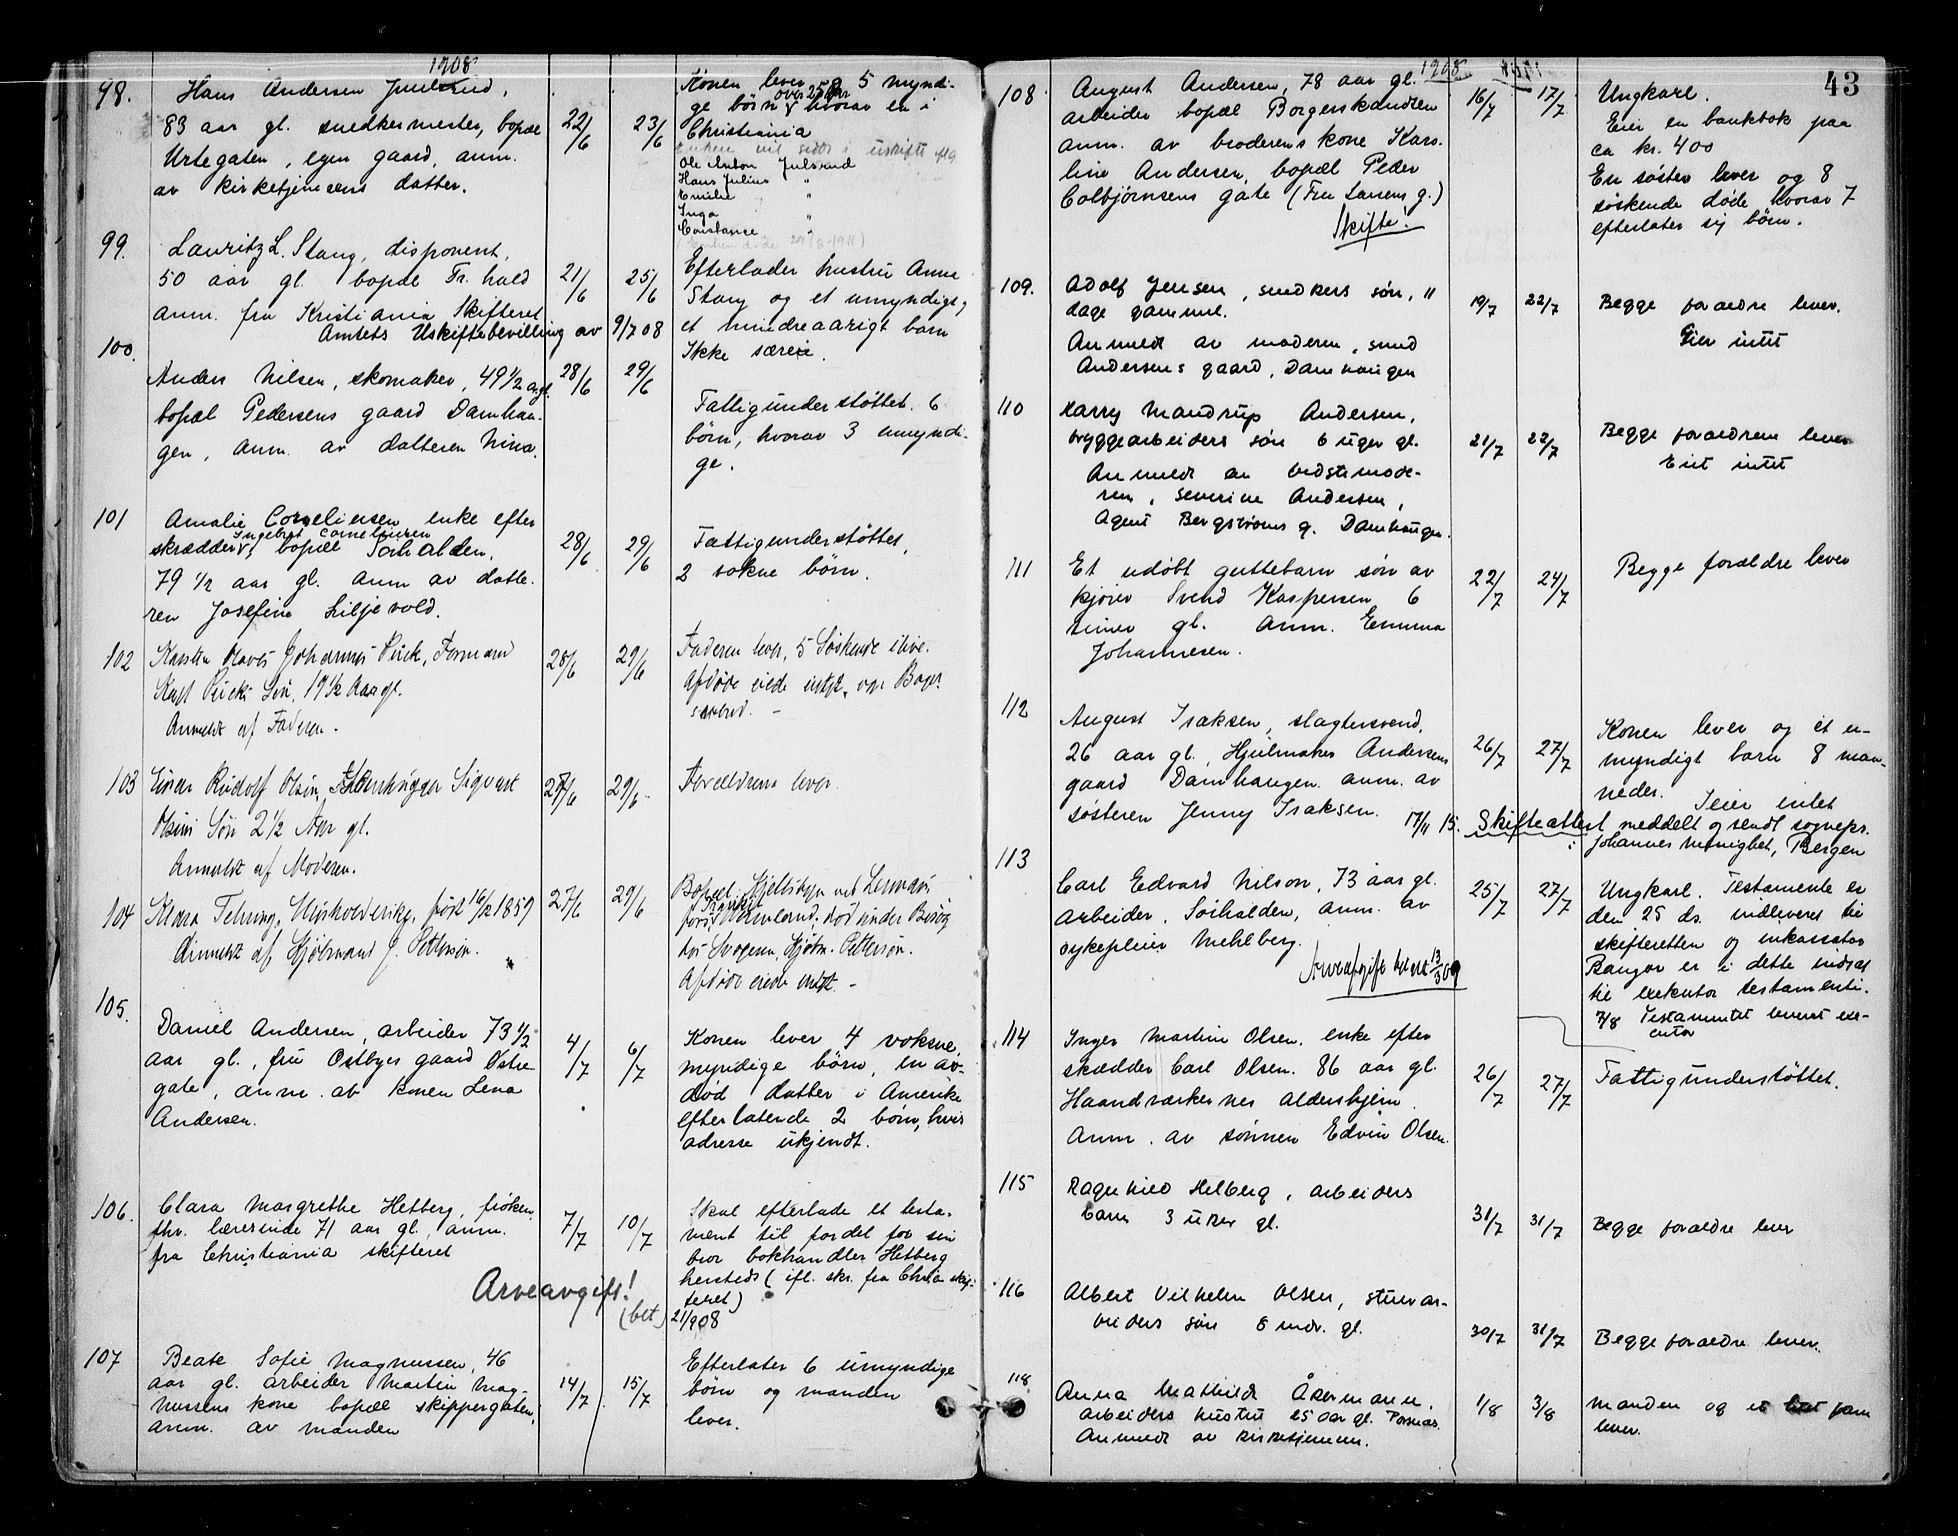 1908
98. Hans Andersen Julsrud,
83 aar gl. snedkermester, bopæl
Urtegaten, egen gaard, anm.
av kirketjenerens datter.
22/6
23/6
Konen lever og 5 myndi-
over 25 aar
ge børn v hvorav en i
Christiania
Enken vil sidde i uskifte
Ole Anton Julsrud
Hans Julius "
Emilie "
Inga "
Constance "
(Enken døde 29/8-1911)
99. Lauritz L. Stang, disponent,
50 aar gl. bopæl Fr.hald
anm. fra Kristiania Skifteret
Amtets Uskiftebevilling av 9/7 08
21/6
25/6
Efterlader hustru Anna
Stang og et umyndigt,
et mindreaarigt barn
Ikke særeie.
100.
Anders Nilsen, skomaker, 49 1/2 a. gl.
bopæl Pedersens gaard Damhau-
gen, anm. av datteren Nina.
28/6
29/6
Fattigunderstøttet. 6
børn, hvorav 3 umyndi-
ge.
101 Amalie Corneliussen enke efter
Ingebret Corneliussen
skrædder v, bopæl Sørhalden.
79 1/2 aar gl. anm av datte-
ren Josefine Liljevold.
28/6
29/6
Fattigunderstøttet,
2 vokne børn.
102 Karsten Olaves Johannes Pück, Formand
Karl Pücks Søn, 17 1/2 Aar gl.
Anmeldt af Faderen.
28/6
29/6
Faderen lever, 5 Søskende ilive.
Afdøde eiede intet, var Bager
svend. -
103 Einar Rudolf Olsen, Stenhugger Sigvart
Olsens Søn 2 1/2 Aar gl.
Anmeldt af Moderen.
28/6
29/6
Forældrene lever.
104 Klara Fehring, født 16/2 1859
Anmeldt af Hjølmand J. Pettersen.
27/6
29/6
Bopæl
Afdøde eiede intet. -
105.
Daniel Andersen, arbeider 73 1/2
aar gl., fru Østbyes gaard Østre
gate, anm. av konen Lena
Andersen.
4/7
6/7
Konen lever 4 voksne,
myndige børn, en av-
død datter i Amerika
efterlatende 2 børn, hvis
adresse ukjendt.
106. Clara Margrethe Hetberg, frøken,
fhv. lærerinde 71 aar gl., anm.
fra Christiania skifteret
Arveavgift!
(bet) 21/9 08
7/7
10/7
Skal efterlade et testa-
ment til fordel for sin
bror bokhandler Hetberg
hersteds (ifl. skr. fra Chr.ia skif-
teret)
107 Beate Sofie Magnussen, 46
aar gl. arbeider Martin Mag-
nussens kone bopæl Skippergaten,
anm. av manden
14/7
15/7
Efterlater 6 umyndige
børn og manden
lever.
1908
43
108 August Andersen, 78 aar gl.
arbeider bopæl Borgerskandsen
anm. av broderens kone Karo-
line Andersen, bopæl Peder
Colbjørnsens gate (Fru Larsens g.)
Skifte!
16/7
17/7
Ungkarl.
Eier en bankbok paa
ca kr. 400
En søster lever og 8
søskende døde hvorav 7
efterlater sig børn.
109. Adolf Jensen, snedkers søn, 11
dage gammel.
Anmeldt av moderen, smed
Andersens gaard, Damhaugen
19/7
22/7
Begge forældre lever.
Eier intet
110 Harry Mandrup Andersen,
bryggearbeiders søn 6 uger gl.
Anmeldt av bedstemode-
ren, Severine Andersen,
Agent Bergstrøms g. Damhaugen.
21/7
22/7
Begge forældrene lever
Eiet intet
111 Et udøbt guttebarn søn av
kjører Svend Kaspersen 6
timer gl. Anm. Emma
Johannesen.
22/7
24/7
Begge forældre lever
112 August Isaksen, slagtersvend,
26 aar gl., Hjulmaker Andersens
gaard Damhaugen. anm. av
søsteren Jenny Isaksen.
26/7
27/7
Konen lever og ét u-
myndigt barn 8 maa-
neder. Ieier intet
17/11 15. Skifteattest meddelt og sendt sognepr.
i Johannes menighet, Bergen
113
Carl Edvard Nilson, 73 aar gl.
arbeider, Sørhalden, anm. av
sykepleier Mehlberg.
Arveafgift betalt 13/3 09
25/7
27/7
Ungkarl. Testamente er
den 25 ds. indleveret til
skifteretten og inkassator
Bangor er i dette indsat
til exekutor testamenti.
7/8 Testamentet leveret exe-
cutor
114 Inger Martine Olsen, enke efter
skrædder Carl Olsen. 86 aar gl.
Haandværkernes Aldershjem
Anm. av sønnen Edvin Olsen.
26/7
27/7
Fattigunderstøttet.
115 Ragnhild Helberg, arbeiders
barn 3 uker gl.
31/7
31/7
Begge forældre lever
116 Albert Vilhelm Olsen, stuvar-
beiders søn 8 mdr. gl.
30/7
31/7
Begge forældre lever.
118 Anna Mathilde Åkermann,
arbeiders hustru 25 aar gl.
Anmeldt av kirketjeneren.
1/8
3/8
Manden og et barn
lever.